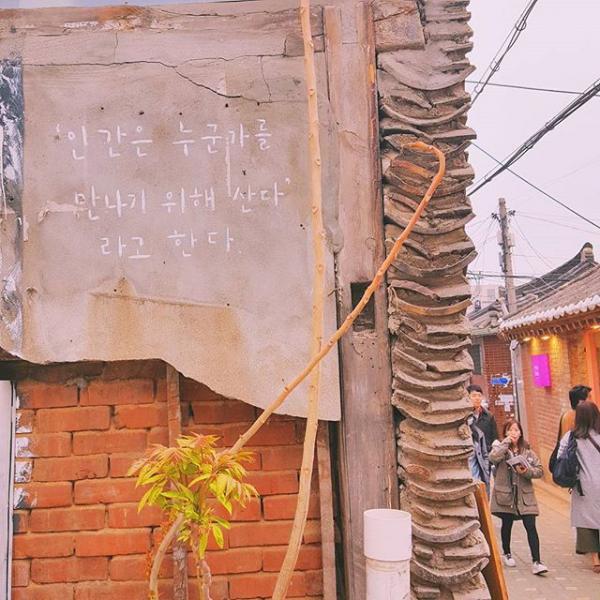 '인간은 누군가를
만나기 위해 산다'
라고 한다.